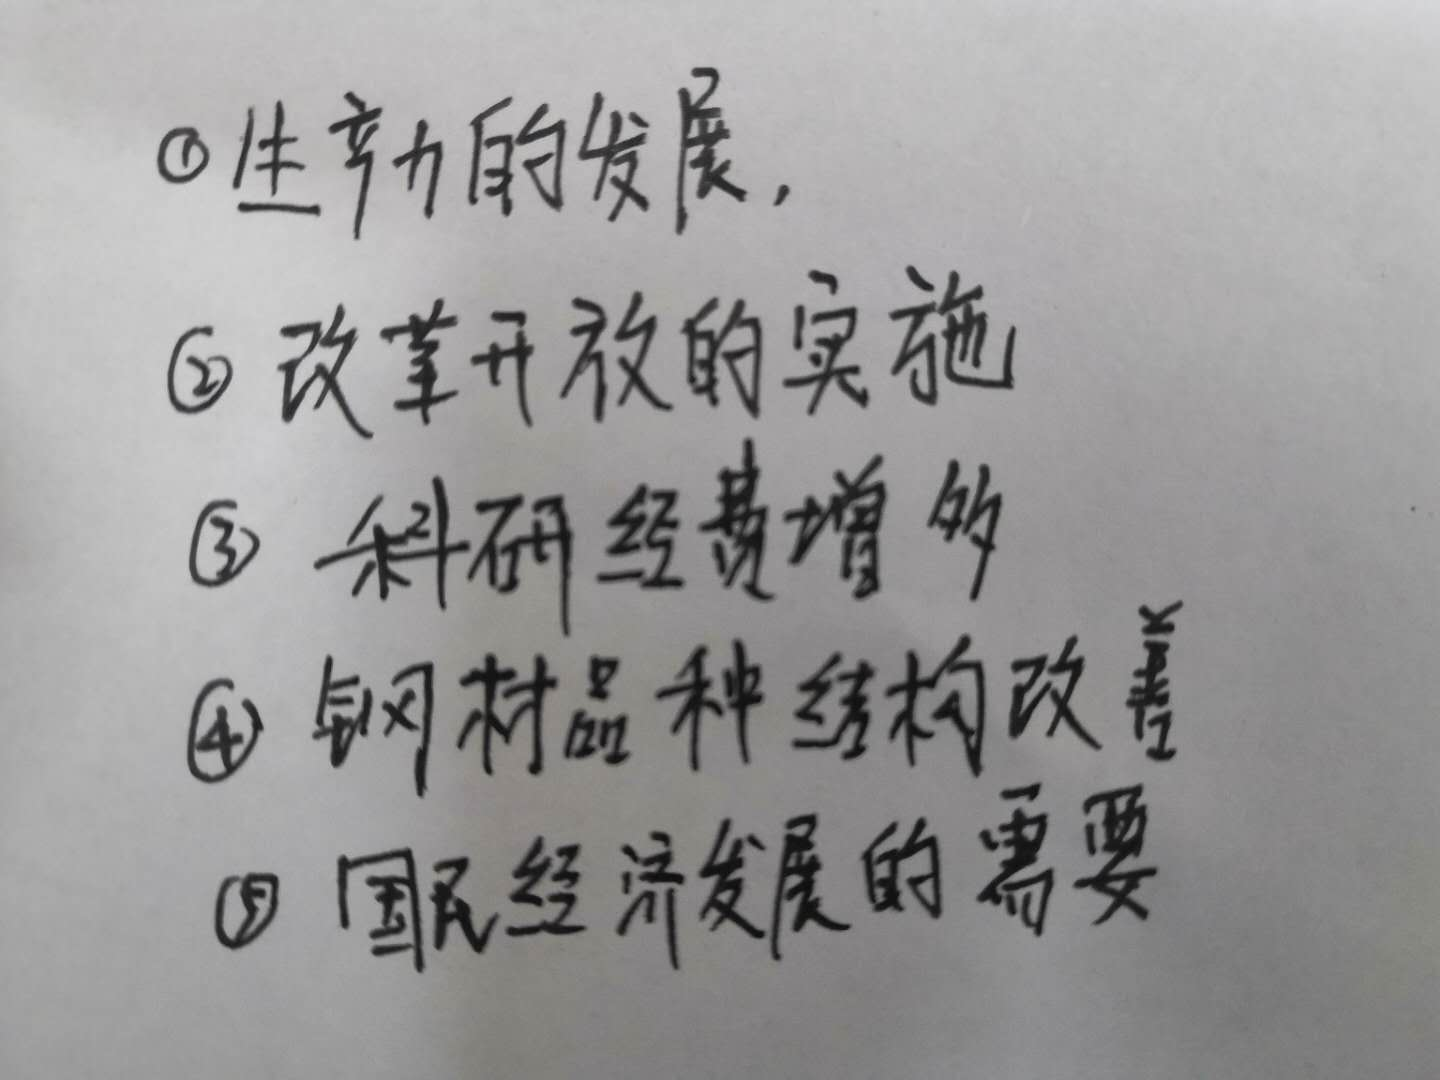 ①生产力的发展,
②改革开放的实施
③科研经费增多
④钢材品种结构改善
⑤国民经济发展的需要